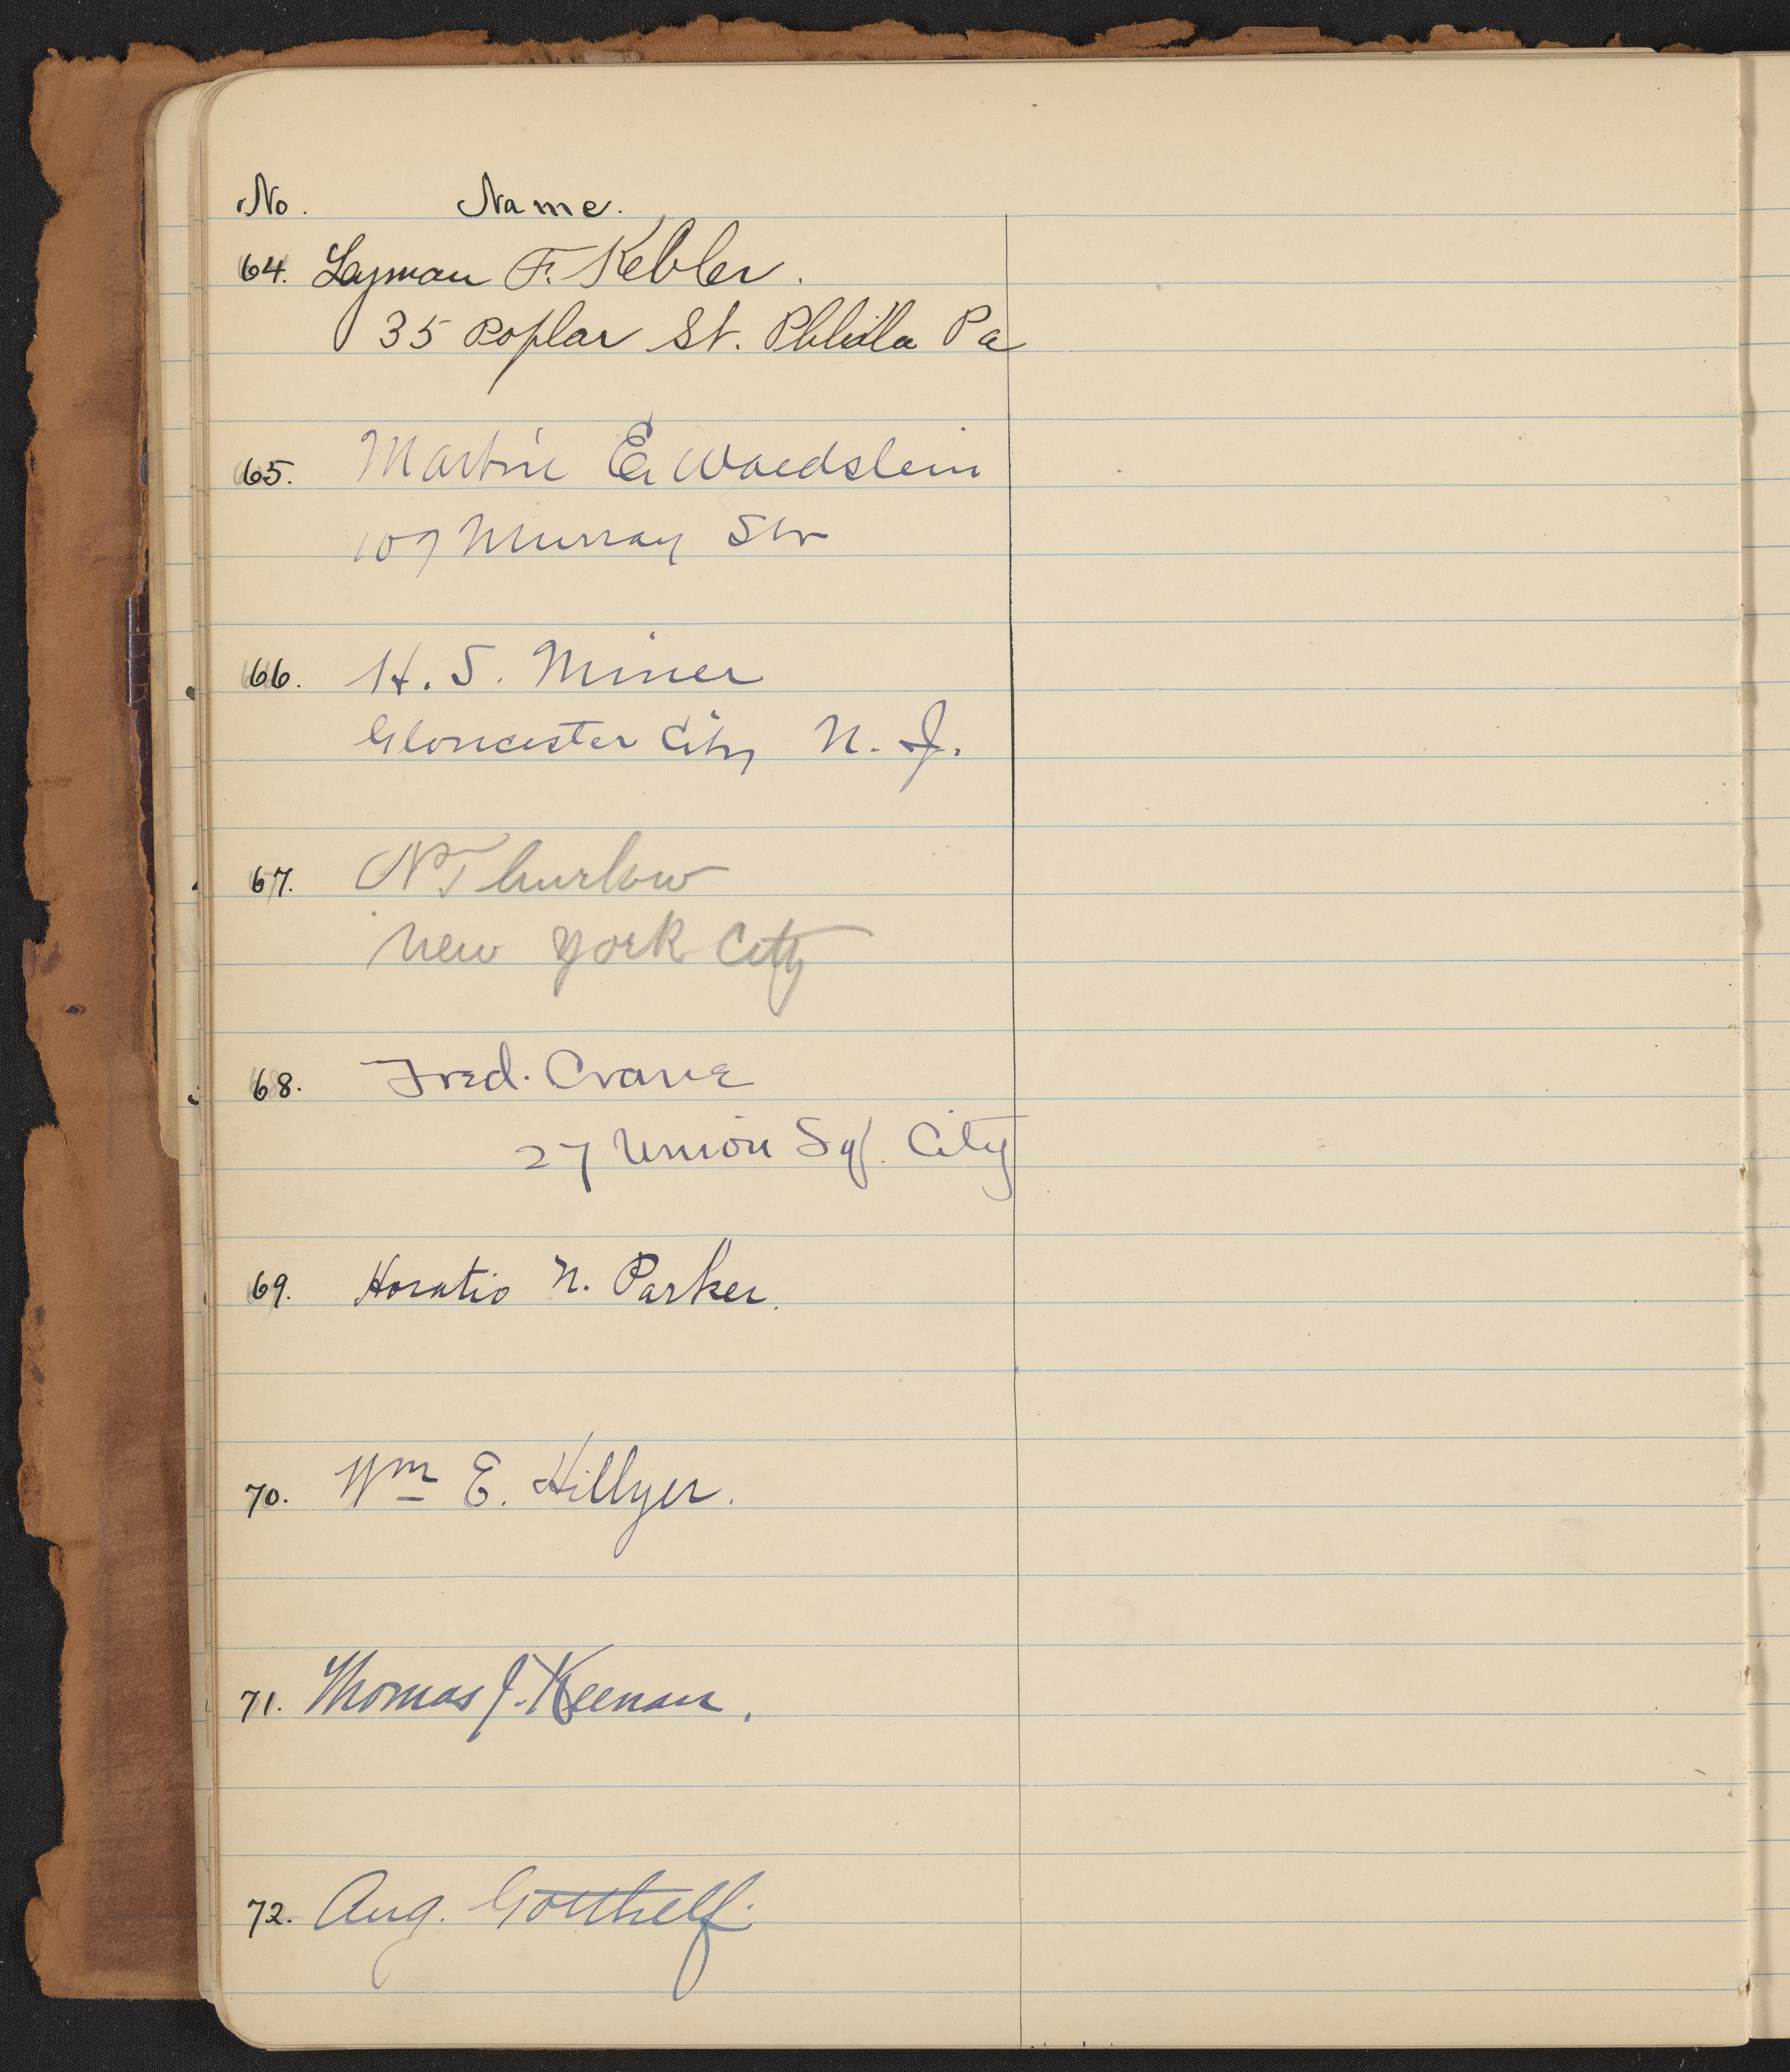 No. Name.
64. Lyman F. Kebler.
35 Poplar St. Phila Pa
65. Martin E. Waldstein
107 Murray Str
66. H. S. Miner
Gloucester City N. J.
67. N Thurlow
New York City
68. Fred. Crane
27 Union Sq. City
69. Horatio N. Parker.
70. Wm E. Hillyer.
71. Thomas J. Keenan.
72. Aug. Gotthelf.